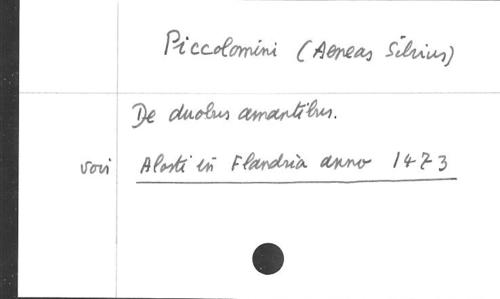 Piccolomini (Aeneas Silvius)
De duobus amantibus.
voir Alosti in Flandria anno 1473